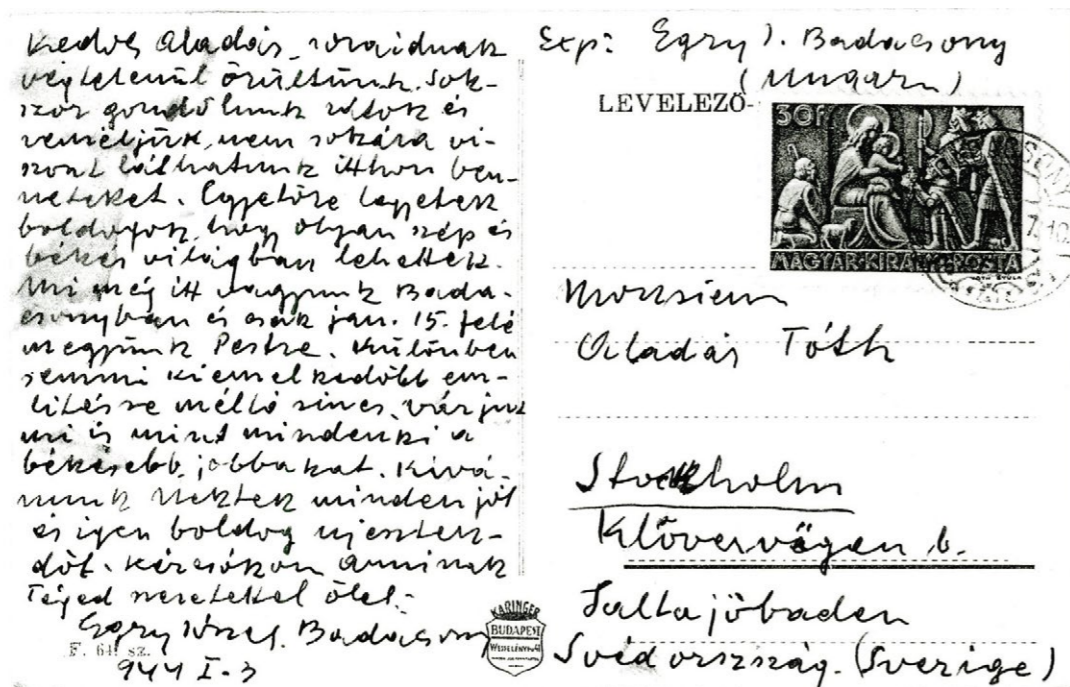 Kedves Aladár, soraidnak
végtelenül örültünk. Sok-
szor gondolunk rátok és
reméljük, nem sokára vi-
szont láthatunk itthon ben-
neteket. Egyelőre legyetek
boldogok, hogy olyan szép és
békés világban lehettek.
Mi még itt vagyunk Bada-
csonyban és csak jan. 15. felé
megyünk Pestre. Különben
semmi kiemelkedőbb em-
litésre méltó nincs, várjuk
mi is mint mindenki a
békésebb, jobbakat. Kivá-
nunk Nektek minden jót
és igen boldog ujeszten-
dőt. Kézcsókom Anninak
Téged szeretettel ölel:
Egry József. Badacsony
944 I. 3
F. 64. sz.
Exp: Egry J. Badacsony
(Ungarn)
LEVELEZŐ-
30f
MAGYAR·KIRÁLYI·POSTA
Monsieur
Aladár Tóth
Stockholm
Klövervägen 6.
Saltsjöbaden
Svédország. (Sverige)
KARINGER
BUDAPEST